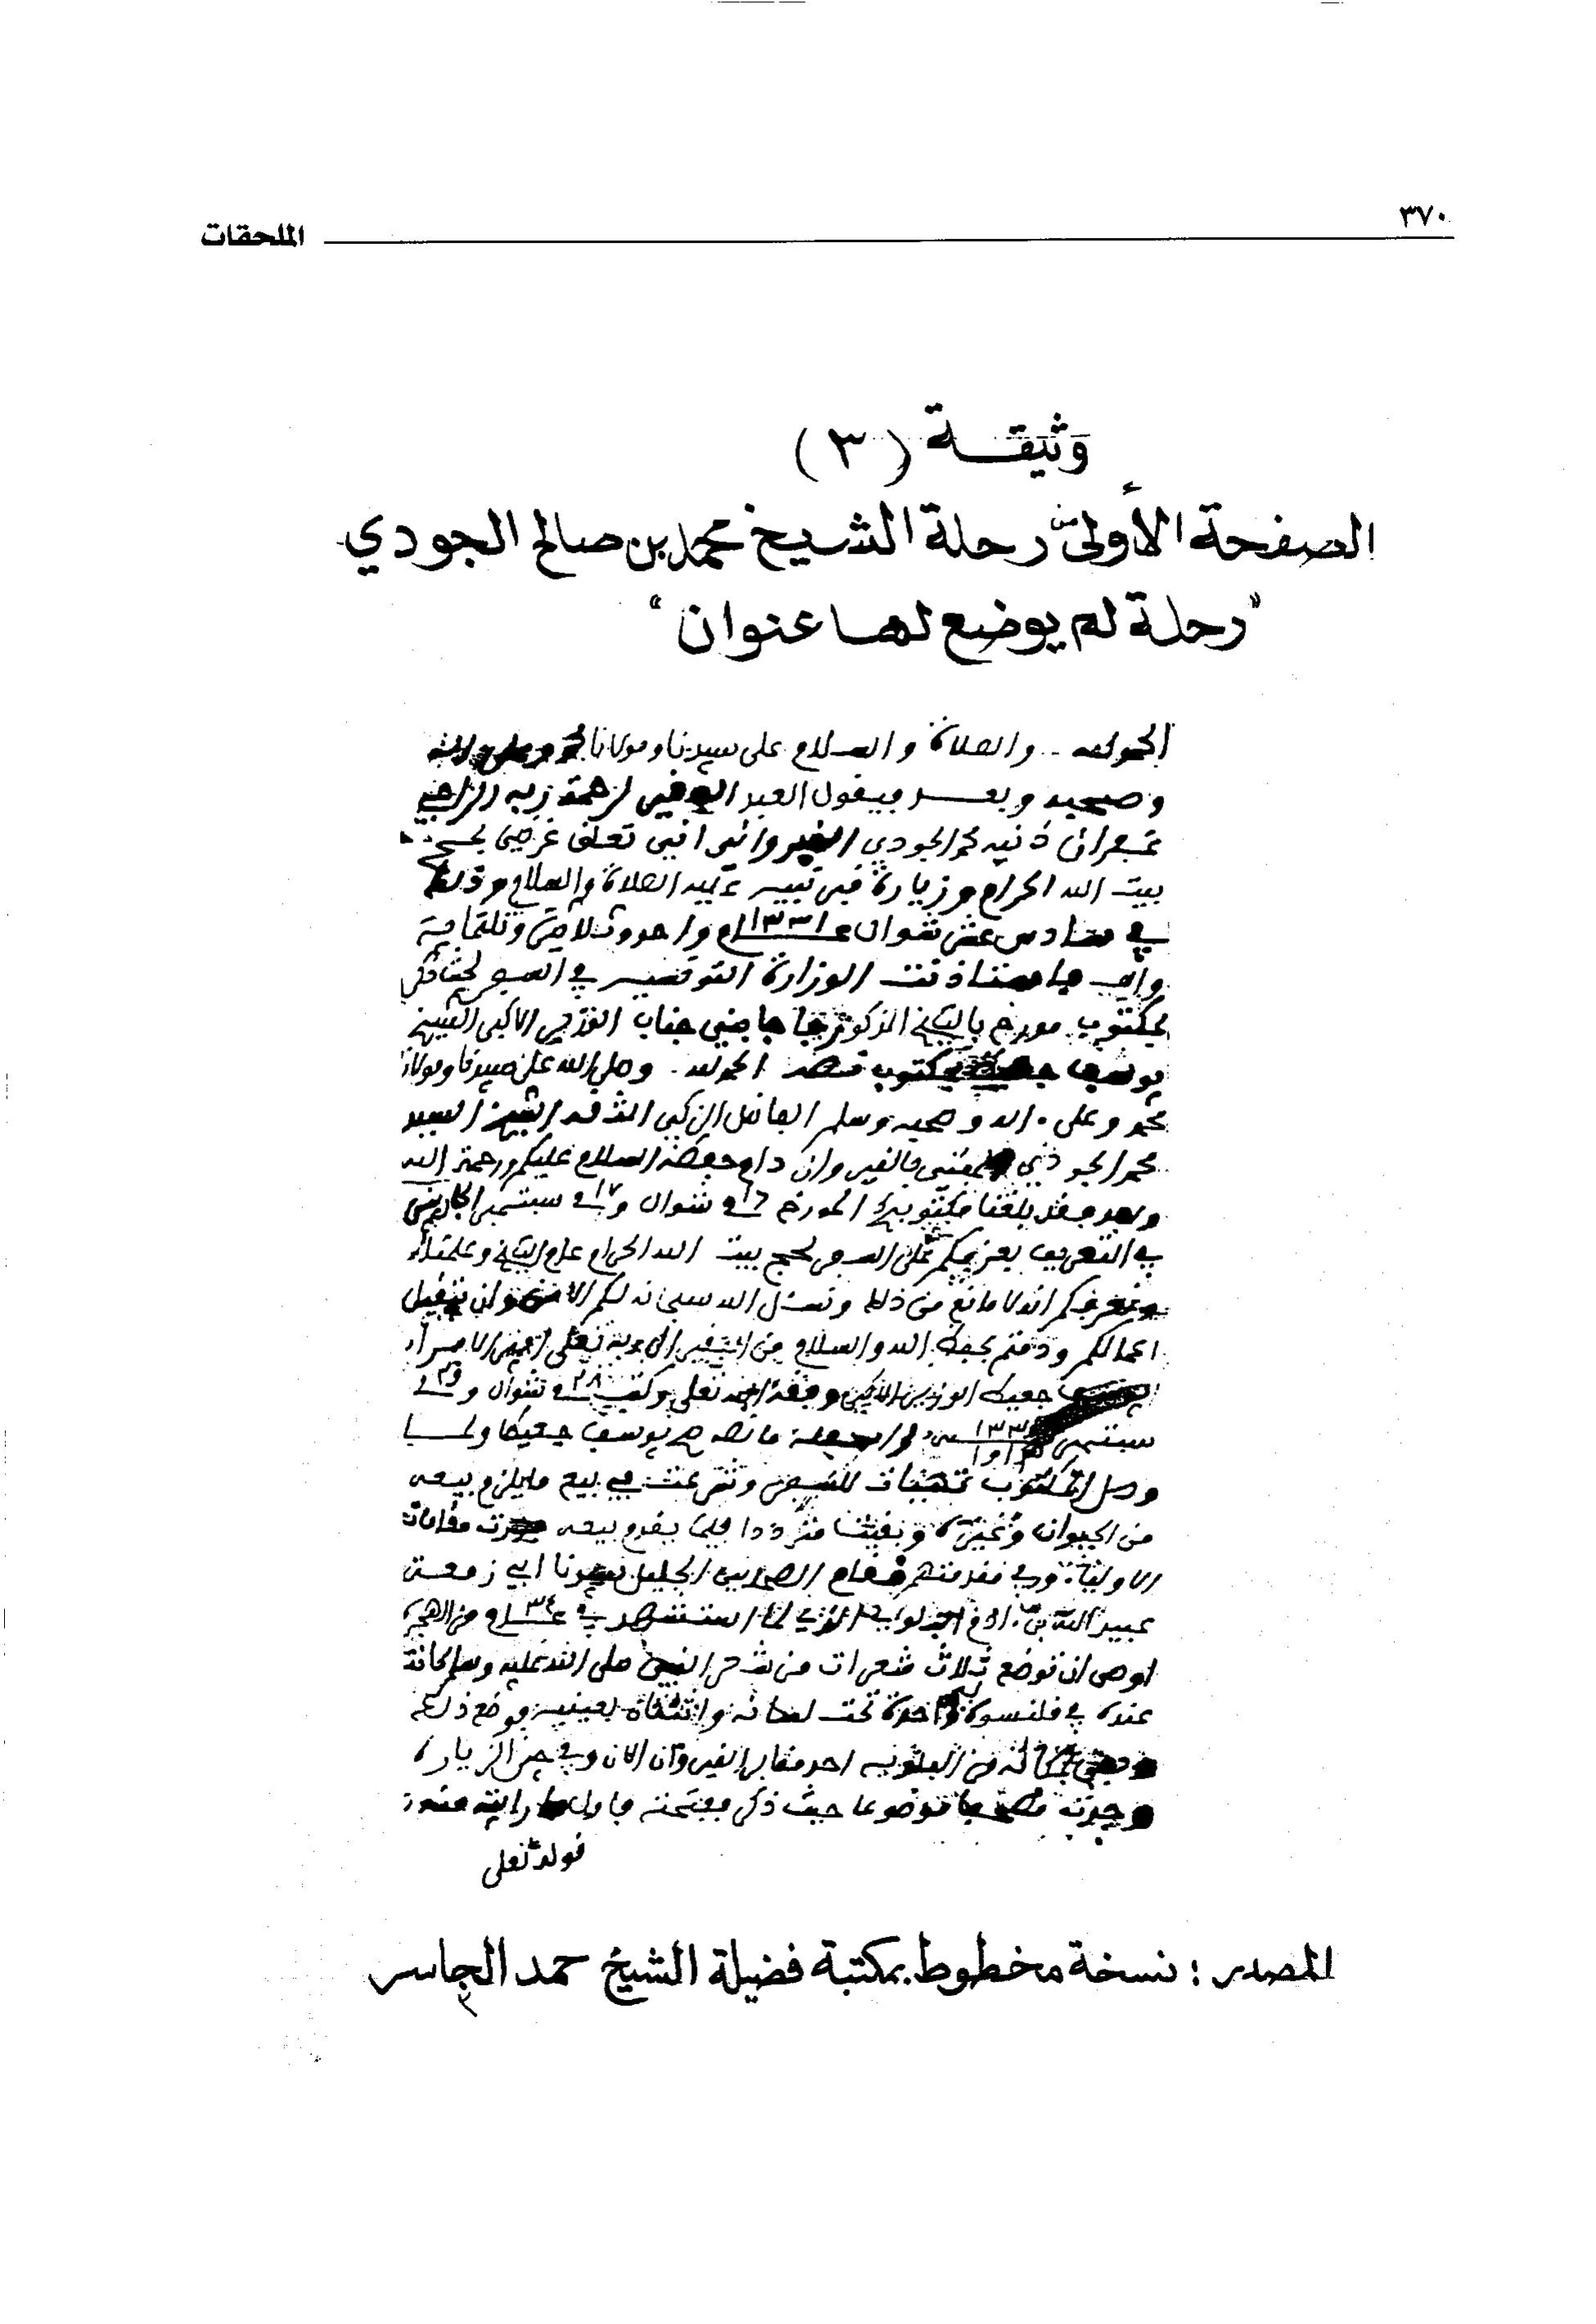 ٣٧٠
الملحقات
وثيقة (٣)
الصفحة الأولى من رحلة الشيخ محمد بن صالح الجودي
"رحلة لم يوضع لها عنوان"
الحمد لله .. والصلاة والسلام على سيدنا ومولانا محمد وعلى آله
وصحبه وبعد فيقول العبد الفقير لرحمة ربه الراجي
غفران ذنبه محمد الجودي القيرواني اني تعلق غرضي بحج
بيت الله الحرام وزيارة قبر نبيه عليه الصلاة والسلام وذلك
في سادس عشر شوال عام ١٣٣١ واحد وثلاثين وثلثماية
والف فاستاذنت الوزارة التونسية في السفر لحيث ذكر
بمكتوب مورخ بالتاريخ المذكور فاجابني جناب الوزير الاكبر الشيخ
يوسف جعيط بمكتوب نصه الحمد لله . وصلى الله على سيدنا ومولانا
محمد وعلى آله وصحبه وسلم الفاضل الزكي الثقة الشيخ السيد
محمد الجودي المفتي بالقيروان دام حفظه السلام عليكم ورحمة الله
وبعد فقد بلغنا مكتوبكم المورخ ١٦ في شوال و١٧ في سبتمبر الجاريين
في التعريف بعزمكم على السفر لحج بيت الله الحرام
ونعرفكم انه لا مانع من ذلك ونسئل الله سبحانه لكم وان يتقبل
اعمالكم ودمتم بحفظ الله والسلام من الفقير الى ربه تعلى امير الامراء
يوسف جعيط الوزير الاكبر وفقه الله تعلى وكتب في ٢٨ شوال و٢٩ في
سبتمبر ١٣٣١ ما نصه صح يوسف جعيط ولما
وصل المكتوب تهيات للسفر وشرعت في بيع ما يلزم بيعه
من الحيوان وغيره وبقيت مترددا فيما يقدم بيعه فزرت مقامات
الاولياء مقام الصحابي الجليل سيدنا ابي زمعة
عبيد الله بن آدم البلوي الذي لما استشهد في عام ٣٤ من الهجرة
اوصى ان توضع ثلاث شعرات من شعر النبي صلى الله عليه وسلم كانت
عنده في قلنسوة واحدة تحت لسانه واثنتان بعينيه فوضع ذلك
من البلوية احد مقابر القيروان الان وفي حين الزيارة
وجدت مصحفا موضوعا حيث ذكر ففتحته فاول ما رايته منه
قوله تعلى
المصدر : نسخة مخطوط بمكتبة فضيلة الشيخ حمد الجاسر